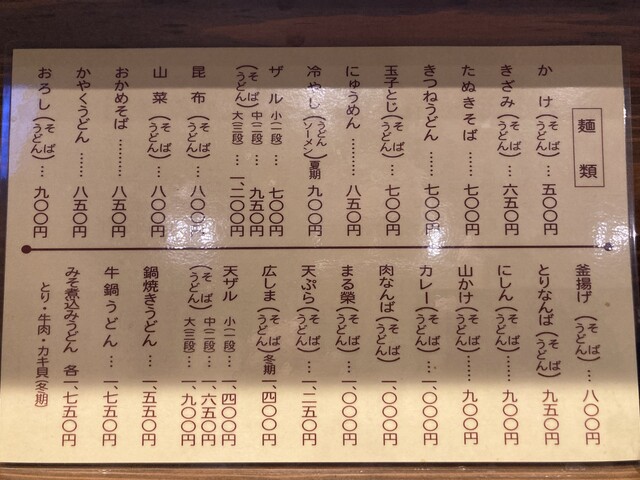 麺類
かけ(そば うどん)…五〇〇円
きざみ(そば うどん)…六五〇円
たぬきそば……七〇〇円
きつねうどん……七〇〇円
玉子とじ(そば うどん)…七〇〇円
にゅうめん……八五〇円
冷やし(うどん ソーメン)夏期 九〇〇円
ザル 小(一段)…七〇〇円
(そば うどん)中(二段)…九五〇円
大(三段)…一、二〇〇円
昆布(そば うどん)…八〇〇円
山菜(そば うどん)…八〇〇円
おかめそば………八五〇円
かやくうどん……八五〇円
おろし(そば うどん)…九〇〇円
釜揚げ(そば うどん)…八〇〇円
とりなんば(そば うどん)九五〇円
にしん(そば うどん)……九〇〇円
山かけ(そば うどん)……九〇〇円
カレー(そば うどん)…一、〇〇〇円
肉なんば(そば うどん)一、〇〇〇円
まる榮(そば うどん)…一、〇〇〇円
天ぷら(そば うどん)…一、二五〇円
広しま(そば うどん)冬期一、四〇〇円
天ザル 小(一段)…一、四〇〇円
(そば うどん)中(二段)…一、六五〇円
大(三段)…一、九〇〇円
鍋焼きうどん…一、五五〇円
牛鍋うどん…一、七五〇円
みそ煮込みうどん 各一、七五〇円
とり・牛肉・カキ貝(冬期)